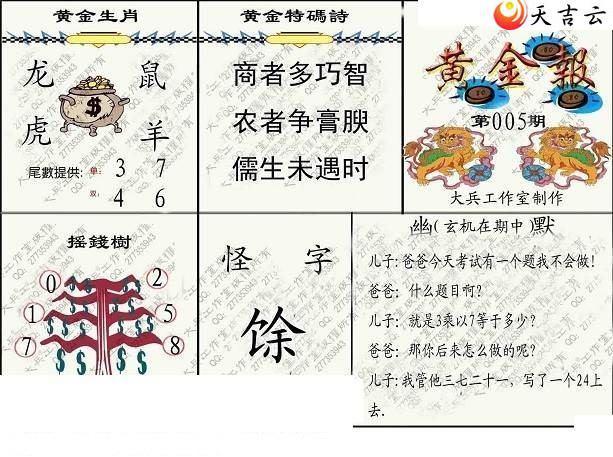 天吉云
黄金生肖
龙 鼠
虎 羊
尾數提供: 单: 3 7
双: 4 6
黄金特碼詩
商者多巧智
农者争膏腴
儒生未遇时
黄金報
第005期
大兵工作室制作
摇錢樹
0 2
1 5
7 8
怪字
馀
幽(玄机在期中)默
儿子: 爸爸今天考试有一个题我不会做!
爸爸: 什么题目啊?
儿子: 就是3乘以7等于多少?
爸爸: 那你后来怎么做的呢?
儿子: 我管他三七二十一, 写了一个24上
去.